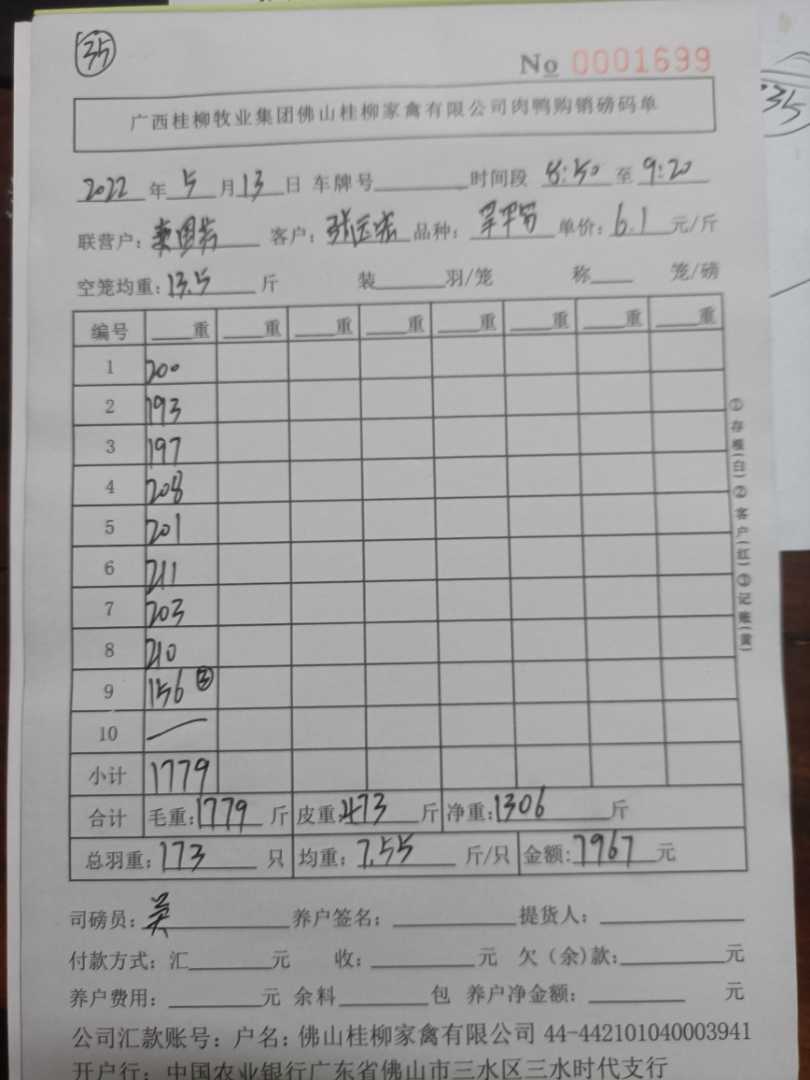 35
No 0001699
广西桂柳牧业集团佛山桂柳家禽有限公司肉鸭购销磅码单
2022 年 5 月 13 日 车牌号 时间段 8:50 至 9:20
联营户: 客户: 张 品种: 单价: 6.1 元/斤
空笼均重: 13.5 斤 装 羽/笼 称 笼/磅
编号 重 重 重 重 重 重 重 重
1 200
2 193
3 197
4 208
5 201
6 211
7 203
8 210
9 156 ③
10
小计 1779
合计 毛重: 1779 斤 皮重: 473 斤 净重: 1306 斤
总羽重: 173 只 均重: 7.55 斤/只 金额: 7967 元
司磅员: 英 养户签名: 提货人:
付款方式: 汇 元 收: 元 欠(余)款: 元
养户费用: 元 余料 包 养户净金额: 元
公司汇款账号: 户名: 佛山桂柳家禽有限公司 44-442101040003941
开户行: 中国农业银行广东省佛山市三水区三水时代支行
①存根(白)②客户(红)③记账(黄)
35